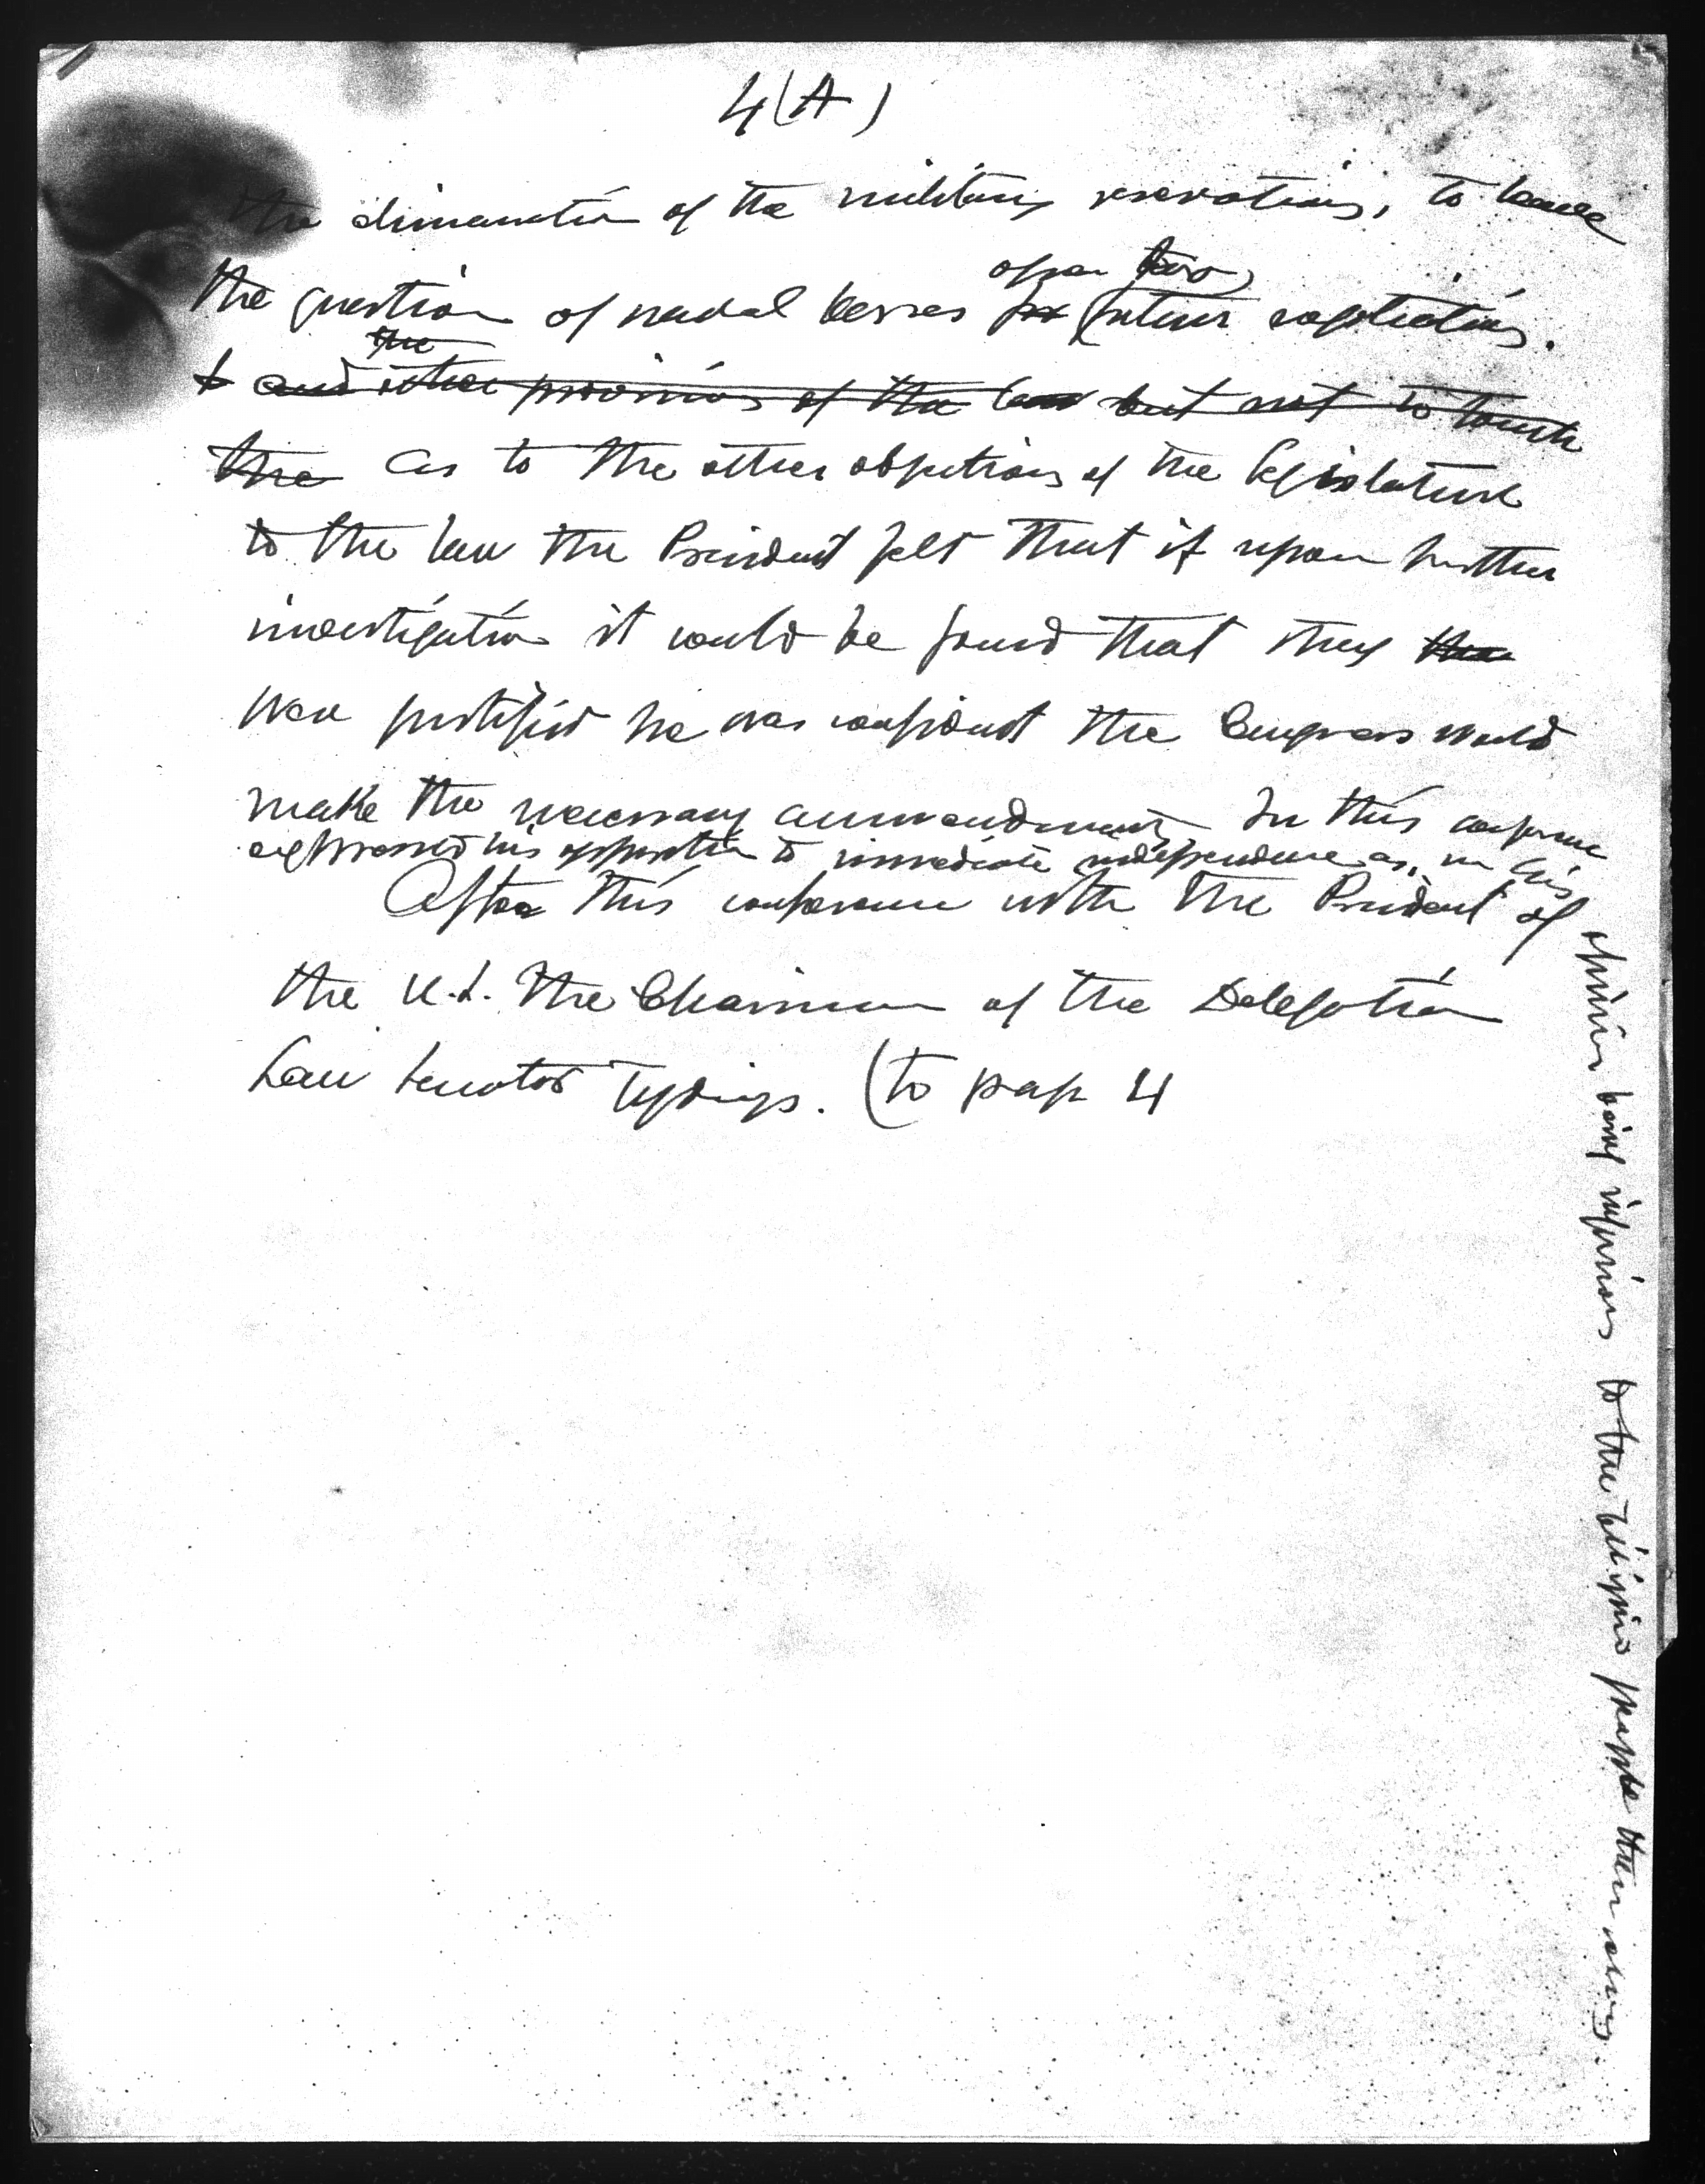 4(A)
the elimination of the military reservations, to leave
open for
the question of naval bases for future negotiations.
the
& and other provisions of the law but not to touch
the as to the other objections of the Legislature
to the law the President felt that if upon further
investigation it would be found that they the
were justified he was confident the Congress would
make the necessary ammendments. In this conference
expressed his opposition to immediate independence as, in his
opinion being injurious to the Filipino people
After this conference with the President of
the U.S. the Chairman of the Delegation
saw Senator Tydings. (to page 4